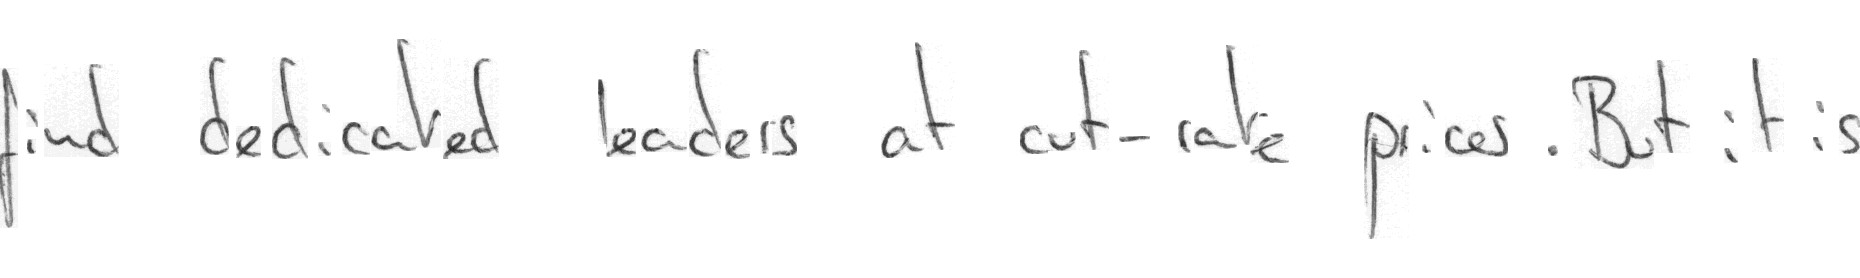 find dedicated leaders at cut-rate prices. But it is